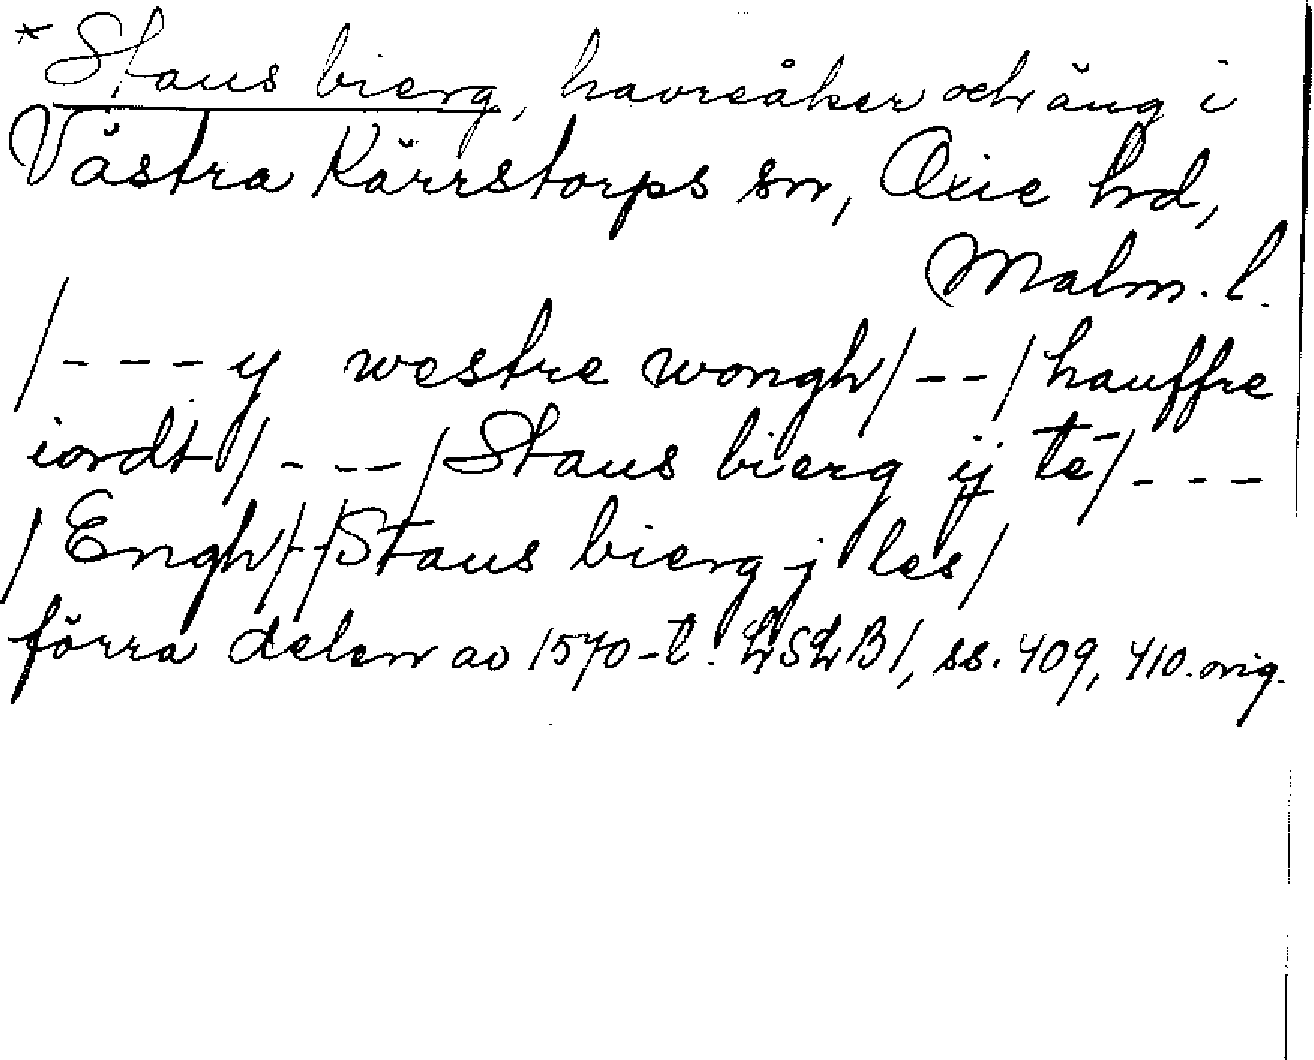 * Staus bierg, havreåker och äng i
Västra Kärrstorps sn, Oxie hd,
Malm. l.
/ - - - y westre wongh / - - / hauffre
iordt / - - - / Staus bierg ij te / - - -
/ Engh / - / Staus bierg j les /
förra delen av 1570-t. LSLB 1, ss. 409, 410. orig.